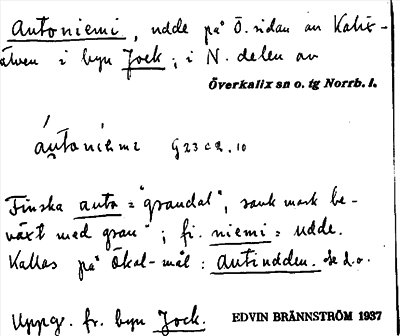 Autoniemi, udde på Ö. sidan av Kalix-
älven i byn Jock; i N. delen av
Överkalix sn o. tg Norrb. l.
áu̯toni̇hmi G23 c 2, 10
Finska auto = "grandal", sank mark be-
växt med gran"; fi. niemi = udde.
Kallas på Ökal-mål: Autiudden. Se d.o.
Uppg. fr. byn Jock. EDVIN BRÄNNSTRÖM 1937